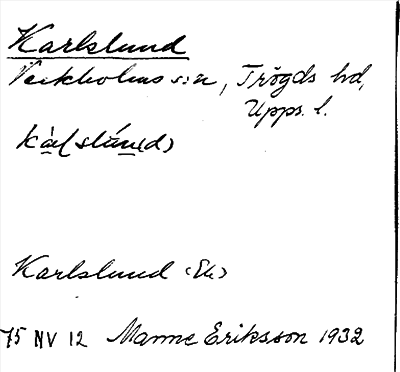 Karlslund
Veckholms sn, Trögds hd,
Upps. l.
Karlslund (Ek)
75 NV 12 Manne Eriksson 1932